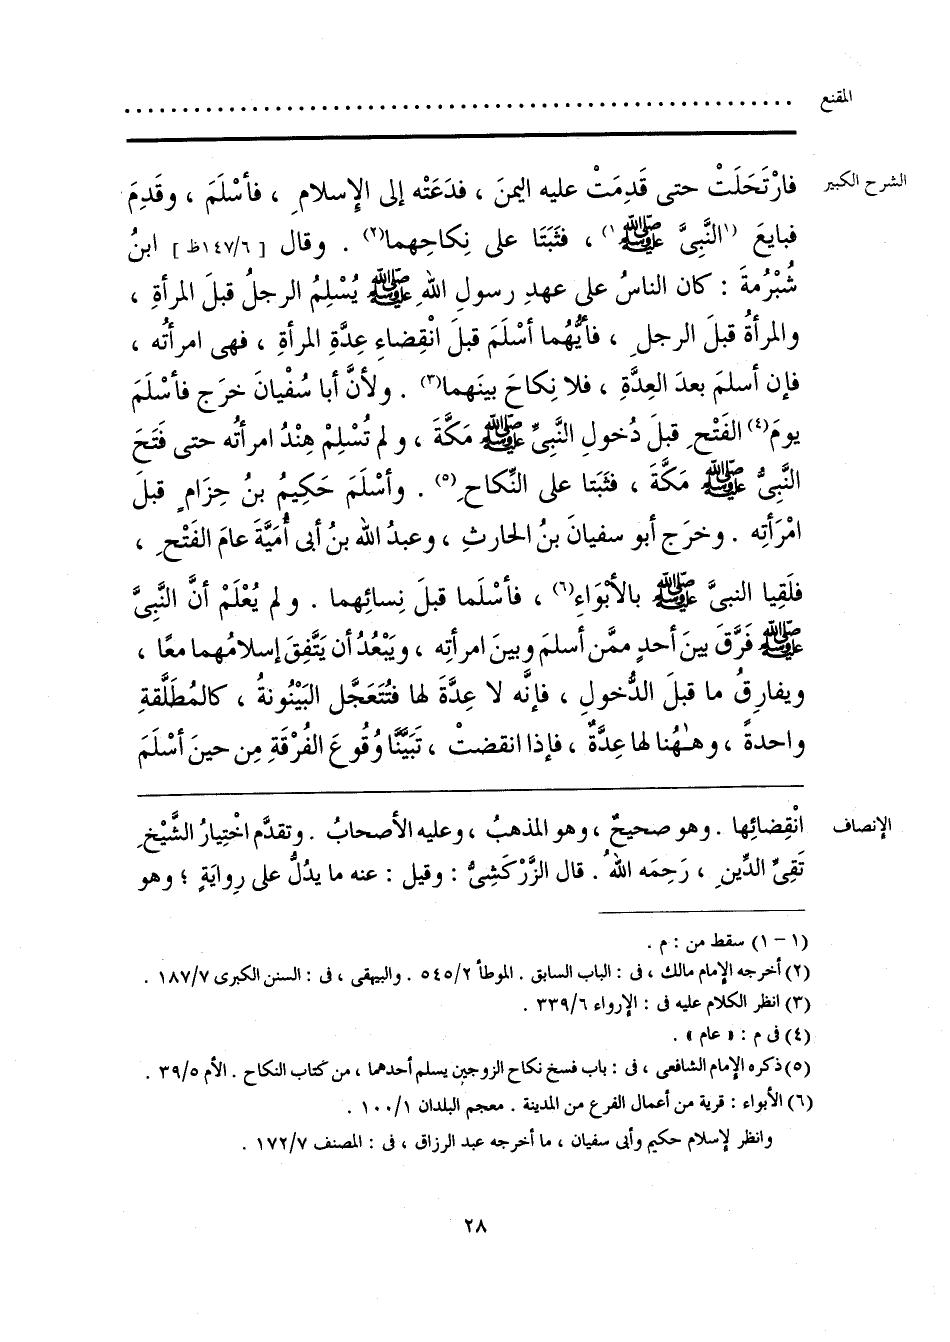 المقنع ........................................................
الشرح الكبير فارْتَحَلَتْ حتى قَدِمَتْ عليه اليمنَ ، فدَعَتْه إلى الإِسلامِ ، فأسْلَمَ ، وقَدِمَ
فبايعَ (١النَّبِىَّ ﷺ١) ، فثَبَتَا على نِكاحِهما(٢) . وقال [ ١٤٧/٦ظ ] ابنُ
شُبْرُمةَ : كان الناسُ على عهدِ رسولِ اللهِ ﷺ يُسْلِمُ الرجلُ قبلَ المرأةِ ،
والمرأةُ قبلَ الرجلِ ، فأيُّهُما أسْلَمَ قبلَ انْقِضاءِ عِدَّةِ المرأةِ ، فهى امرأتُه ،
فإن أسلمَ بعدَ العِدَّةِ ، فلا نِكاحَ بينَهما(٣) . ولأنَّ أبا سُفْيانَ خرَج فأسْلَمَ
يومَ(٤) الفَتْحِ قبلَ دُخولِ النَّبِىِّ ﷺ مَكَّةَ ، ولم تُسْلِمْ هِنْدُ امرأتُه حتى فَتَحَ
النَّبِىُّ ﷺ مَكَّةَ ، فثَبَتا على النِّكاحِ(٥) . وأسْلَمَ حَكِيمُ بنُ حِزامٍ قبلَ
امْرَأتِه . وخرَج أبو سفيانَ بنُ الحارثِ ، وعبدُ الله بنُ أبى أُمَيَّةَ عامَ الفَتْحِ ،
فلَقِيا النبىَّ ﷺ بالأبْوَاءِ(٦) ، فأسْلَما قبلَ نِسائِهما . ولم يُعْلَمْ أنَّ النَّبِىَّ
ﷺ فَرَّقَ بينَ أحدٍ ممَّن أسلمَ وبينَ امرأتِه ، ويَبْعُدُ أن يَتَّفِقَ إسلامُهما معًا ،
ويفارِقُ ما قبلَ الدُّخولِ ، فإنَّه لا عِدَّةَ لها فتُتَعَجَّل البَيْنُونةُ ، كالمُطَلَّقةِ
واحدةً ، وهـٰهُنا لها عِدَّةٌ ، فإذا انقضتْ ، تَبَيَّنَّا وُقُوعَ الفُرْقَةِ مِن حينَ أسْلَمَ
الإنصاف انْقِضائِها . وهو صحيحٌ ، وهو المذهبُ ، وعليه الأصحابُ . وتقدَّم اخْتِيارُ الشَّيْخِ
تَقِىِّ الدِّينِ ، رَحِمَه اللهُ . قال الزَّرْكَشِىُّ : وقيل : عنه ما يدُلُّ على رِوايَةٍ ؛ وهو
(١ - ١) سقط من : م .
(٢) أخرجه الإمام مالك ، فى : الباب السابق . الموطأ ٥٤٥/٢ . والبيهقى ، فى : السنن الكبرى ١٨٧/٧ .
(٣) انظر الكلام عليه فى : الإرواء ٣٣٩/٦ .
(٤) فى م : « عام » .
(٥) ذكره الإمام الشافعى ، فى : باب فسخ نكاح الزوجين يسلم أحدهما ، من كتاب النكاح . الأم ٣٩/٥ .
(٦) الأبواء : قرية من أعمال الفرع من المدينة . معجم البلدان ١٠٠/١ .
وانظر لإسلام حكيم وأبى سفيان ، ما أخرجه عبد الرزاق ، فى : المصنف ١٧٢/٧ .
٢٨